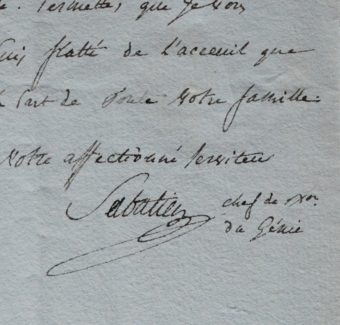 Permettez, que je vous
suis flatté de l'acceuil que
part de toute votre famille.
votre affectionné serviteur
Sabatier chef de Bon.
du Génie